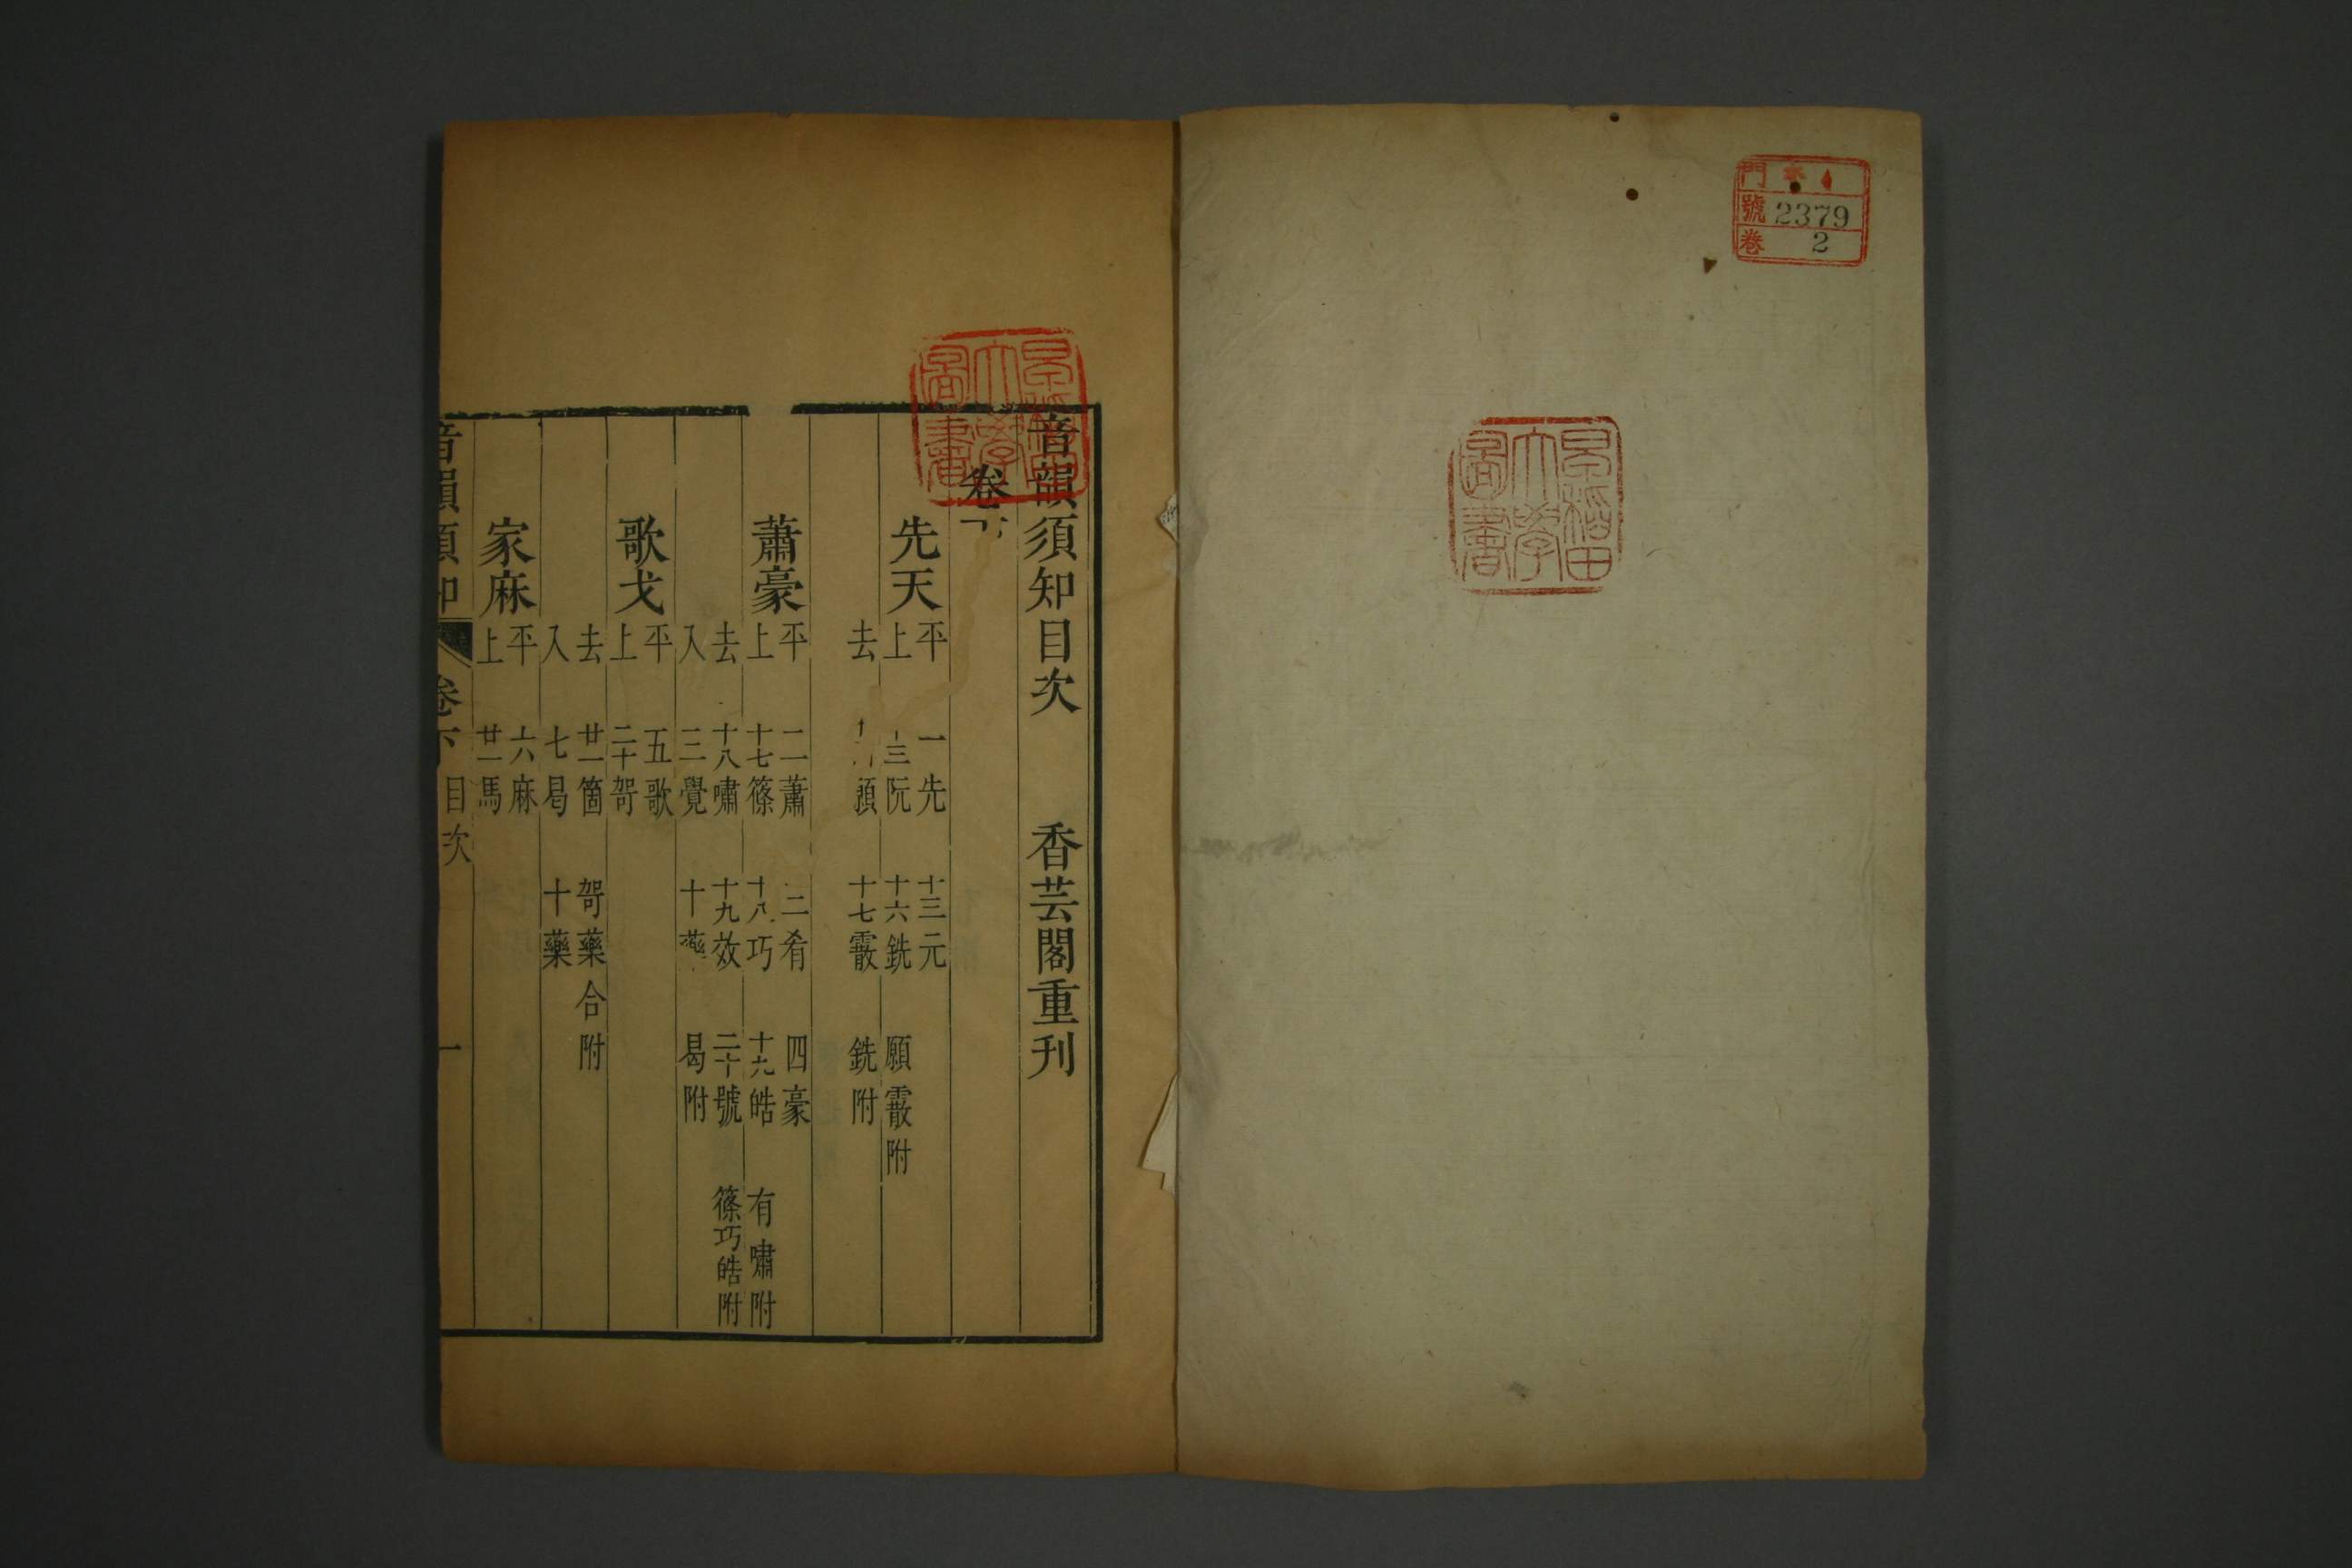 門
號 2379
卷 2
早稻田
大學
圖書
早稻田
大學
圖書
音韻須知目次 香芸閣重刊
卷下
先天 平 一先 十三元
上 十三阮 十六銑 願霰附
去 願 十七霰 銑附
蕭豪 平 二蕭 三肴 四豪
上 十七篠 十八巧 十九皓 有嘯附
去 十八嘯 十九效 二十號 篠巧皓附
入 三覺 十藥 曷附
歌戈 平 五歌
上 二十哿
去 廿一箇 哿藥合附
入 七曷 十藥
家麻 平 六麻
上 廿一馬
音韻須知 卷下 目次 一